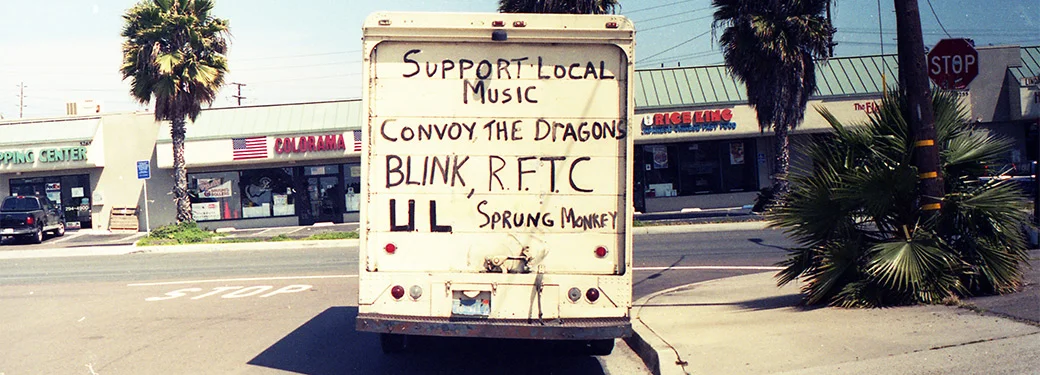 SUPPORT LOCAL
MUSIC
CONVOY, THE DRAGONS
BLINK, R.F.T.C
U.L SPRUNG MONKEY
PPING CENTER
COLORAMA
RICE KING
The
STOP
STOP